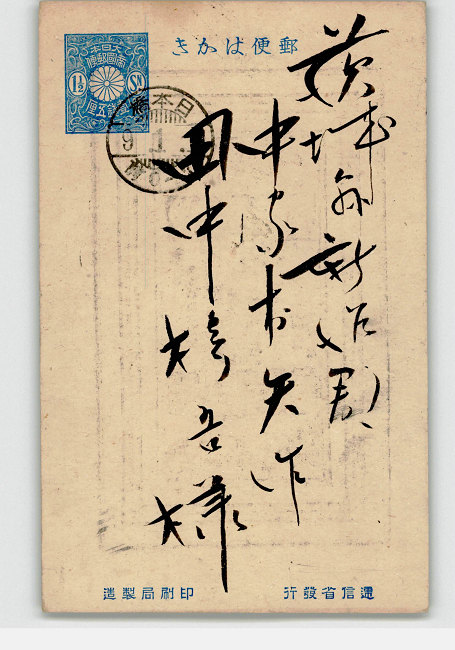 郵便はかき
大日本帝國郵便
1½ Sn
壹錢五厘
日本橋
9.1.
茨城縣新治郡
中家村矢作
田中 吉様
遞信省發行
印刷局製造